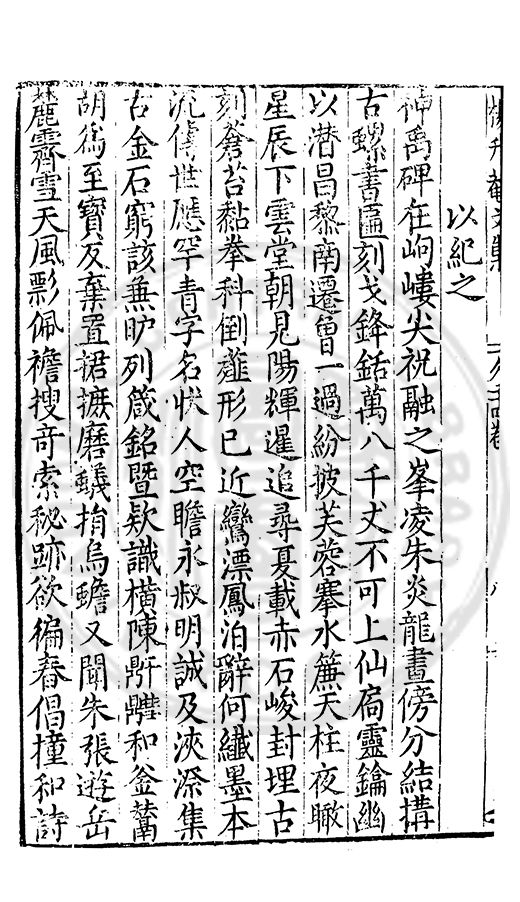 以紀之
神禹碑在岣嶁尖祝融之峯凌朱炎龍畫傍分結搆
古螺書匾刻戈鋒銛萬八千丈不可上仙扃靈鑰幽
以潛昌黎南遷曾一過紛披芙蓉搴水簾天柱夜瞰
星辰下雲堂朝見陽輝暹追尋夏載赤石峻封埋古
刻蒼苔黏拳科倒薤形已近鸞漂鳳泊辭何纖墨本
流傳世應罕青字名狀人空瞻永叔明誠及浹漈集
古金石窮該兼昈列箴銘暨欵識橫陳鼾䶎和釜鬵
胡為至寶反棄置捃摭磨蟻捐烏蟾又聞朱張遊岳
麓霽雪天風影佩襜搜奇索秘跡欲徧舂倡撞和詩